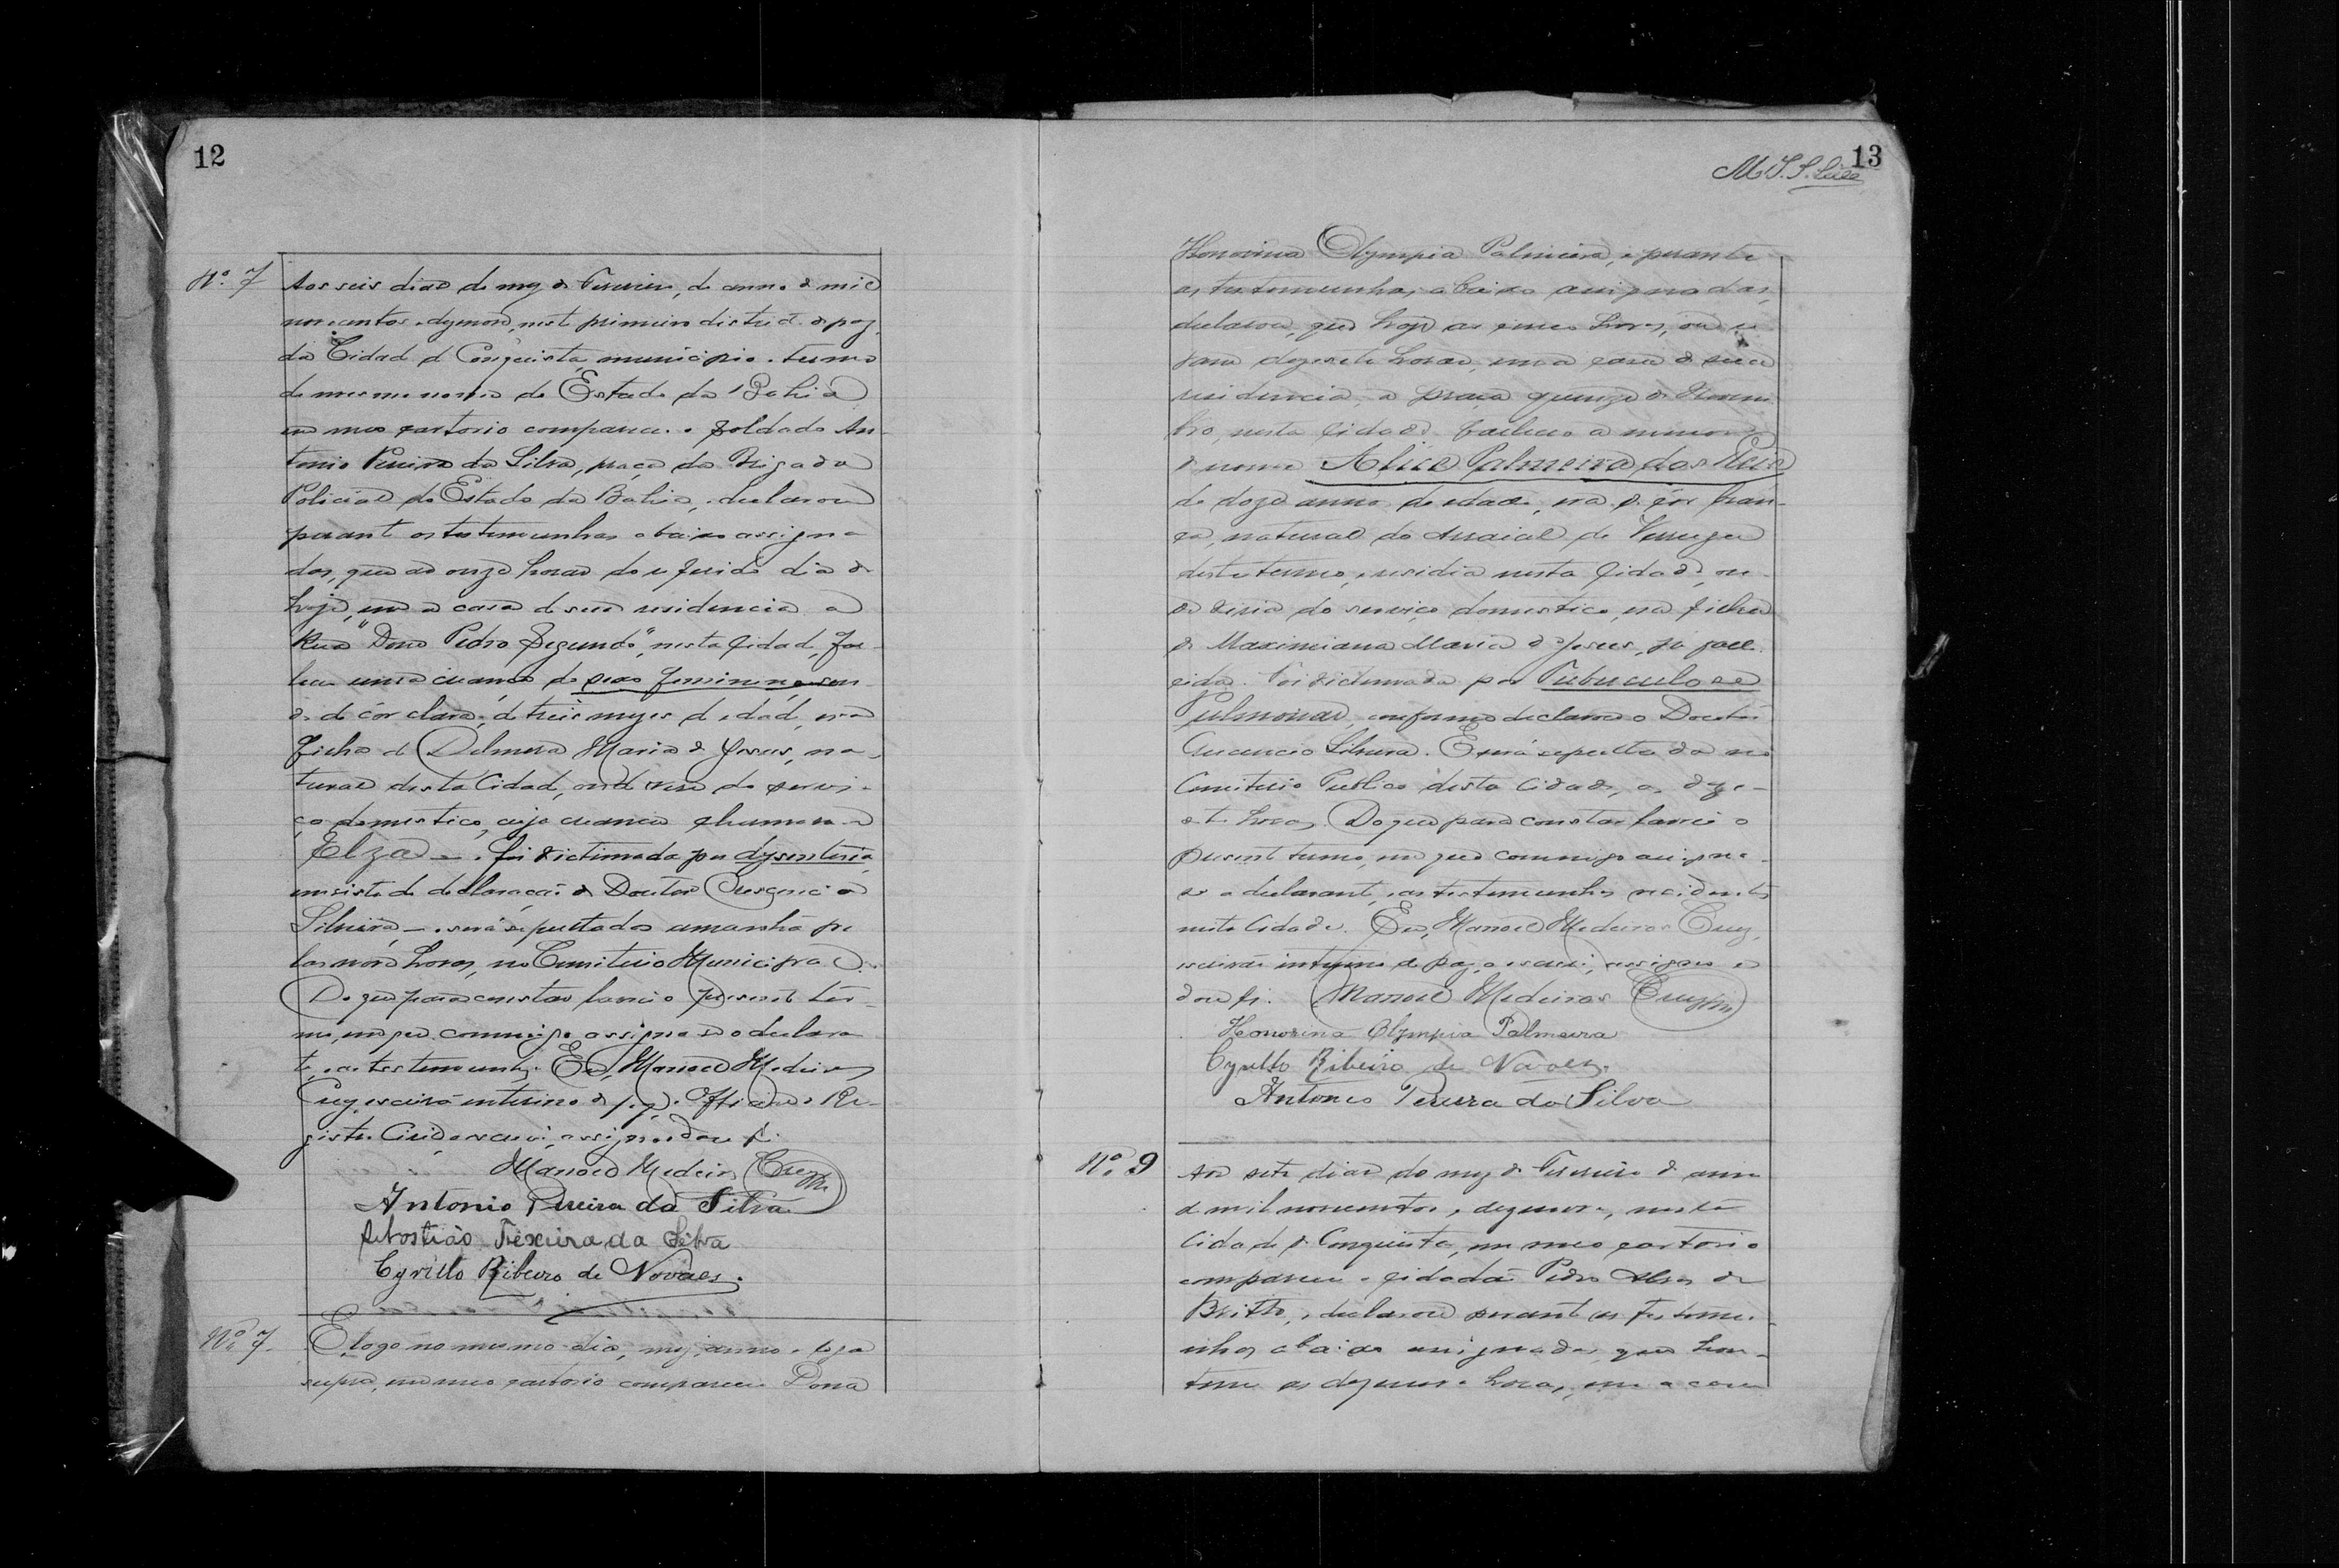 12
Nº 7
Aos seis dias do mez de Fevereiro, do anno de mil
novecentos e dezenove, neste primeiro districto de paz
da Cidade de Conquista, municipio e termo
do mesmo nome do Estado da Bahia
em meu cartorio compareceu o soldado An-
tonio Pereira da Silva, praça da Brigada
Policial do Estado da Bahia, e declarou
perante as testemunhas abaixo assigna-
das, que as onze horas do referido dia de
hoje, em a casa de sua residencia a
Rua "Dom Pedro Segundo", nesta cidade, fal-
leceu uma creança do sexo feminino, sen-
do de côr clara, de treis mezes de edade, era
filha de Delmera Maria de Jesus, na-
tural desta Cidade, onde vive do servi-
ço domestico, cuja creança chamava-se
Elza — e foi victimada por dysenteria,
em vista de declaração do Doutor Crescencio
Silveira, — e será sepultada amanhã pe-
las nove horas, no Cemiterio Municipal.
Do que para constar lavrei o presente ter-
mo, em que commigo assigna-se o declaran-
te, e as testemunhas. Eu, Manoel Medeiros
Cruz, escrivão interino de paz e Official do Re-
gistro Civil o escrevi, assigno e dou fé.
Manoel Medeiros Cruz
Antonio Pereira da Silva
Sebastião Teixeira da Silva
Cyrillo Ribeiro de Novaes.
Nº 7.
E, logo no mesmo dia, mez, anno e logar
supra, em meu cartorio compareceu Dona
13
M. S. S.
Honorina Olympia Palmeira, e perante
as testemunhas abaixo assignadas,
declarou, que hoje as cinco horas, ou se-
jam dezesete horas, em a casa de sua
residencia, a praça quinze de Novem-
bro, nesta cidade, falleceu a menor
de nome Alice Palmeira dos Reis
de doze annos de edade, era de côr bran-
ca, natural do Arraial de Verruga
deste termo, e residia nesta Cidade, on-
de vivia do serviço domestico, era filha
de Maximiana Maria de Jesus, já falle-
cida. Foi victimada por Tuberculose
Pulmonar, conforme declarou o Doutor
Crescencio Silveira. E será sepultada no
Cemiterio Publico desta Cidade, as deze-
sete horas. Do que para constar lavrei o
presente termo, em que commigo assigna-
se a declarante, e as testemunhas residentes
nesta Cidade. Eu, Manoel Medeiros Cruz,
escrivão interino de paz, o escrevi, assigno e
dou fé. Manoel Medeiros Cruz
Honorina Olympia Palmeira
Cyrillo Ribeiro de Novaes.
Antonio Pereira da Silva
Nº 9
Aos sete dias do mez de Fevereiro do anno
de mil novecentos e dezenove, nesta
Cidade de Conquista, em meu cartorio
compareceu o cidadão Pedro Alves de
Britto, e declarou perante as testemu-
nhas abaixo assignadas, que hon-
tem as dezenove horas, em a casa